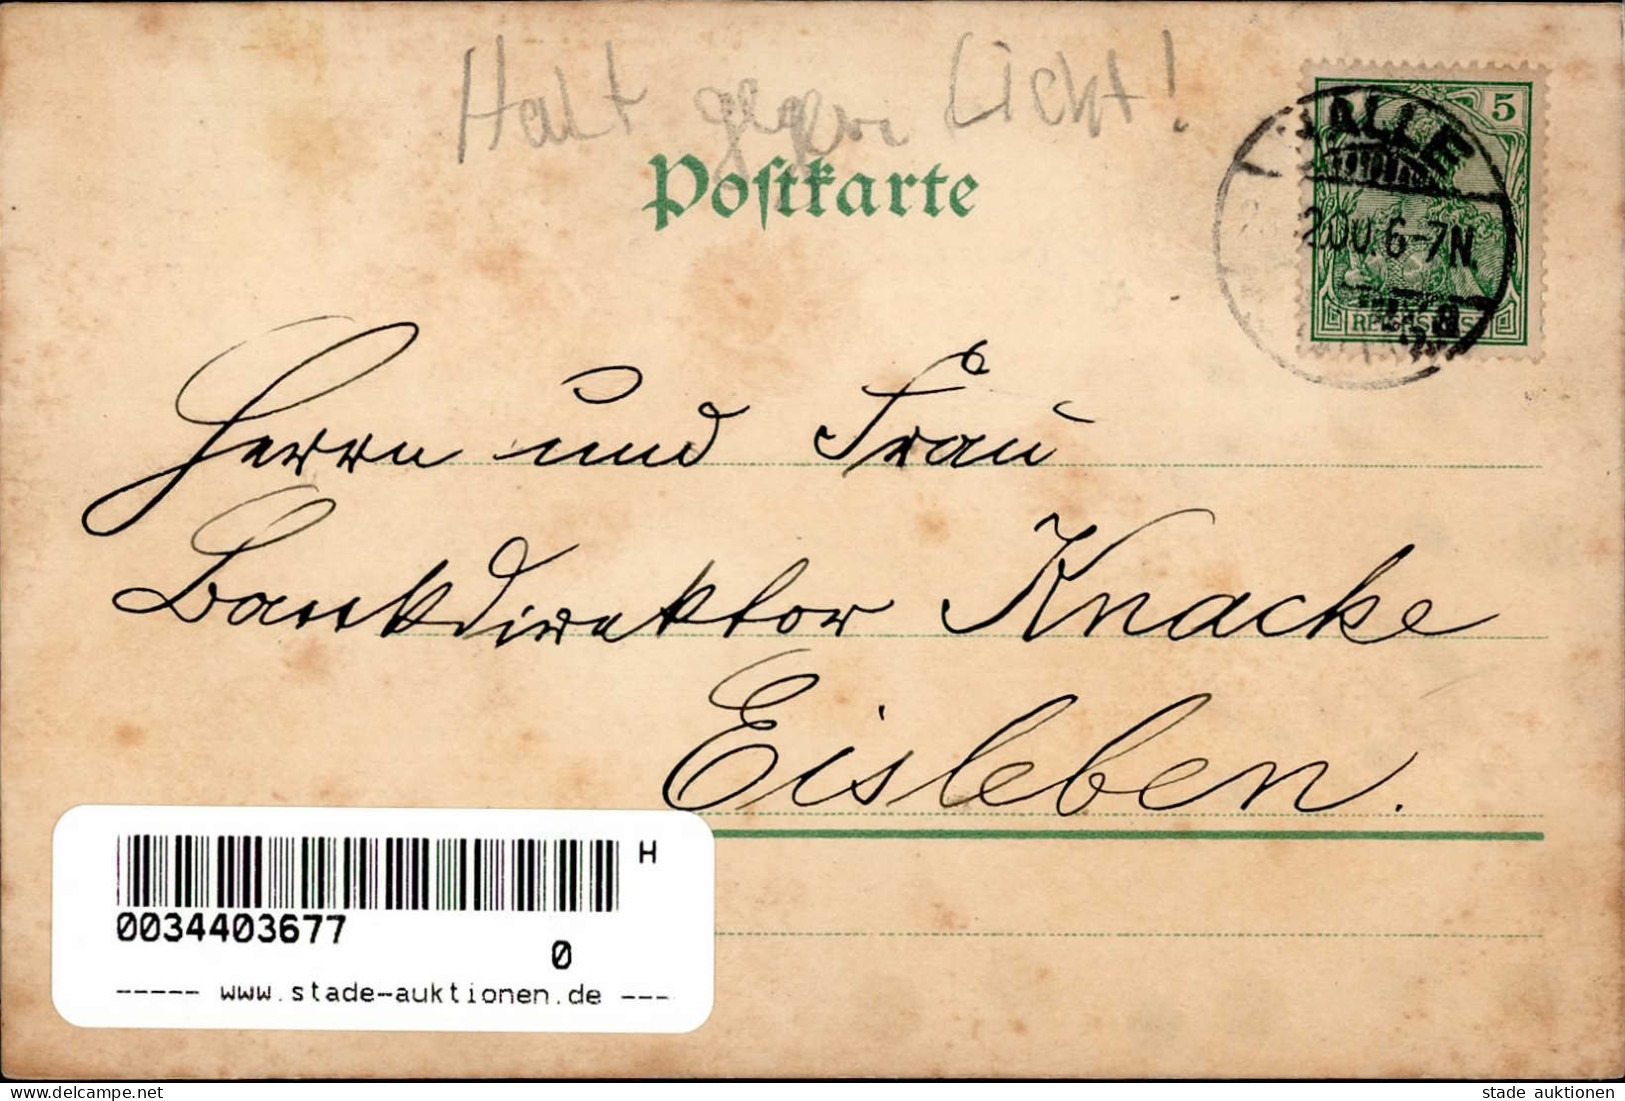 Halt gegen Licht!
Postkarte
5
HALLE
6-7N.
REICHSPOST
Herrn und Frau
Bankdirektor Knacke
Eisleben.
H
0034403677
0
----- www.stade-auktionen.de ---
stade auktionen